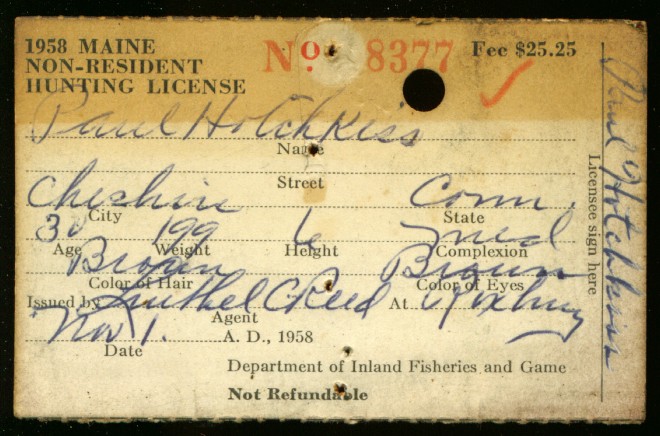 1958 MAINE
NON-RESIDENT
HUNTING LICENSE
No. 8377 Fee $25.25
Paul Hotchkiss
Name
Street
Cheshire Conn.
City State
30 199 6 med
Age Weight Height Complexion
Brown Brown
Color of Hair Color of Eyes
Issued by C Reed At Roxbury
Agent
Nov 1. A. D., 1958
Date
Department of Inland Fisheries and Game
Not Refundable
Licensee sign here
Paul Hotchkiss